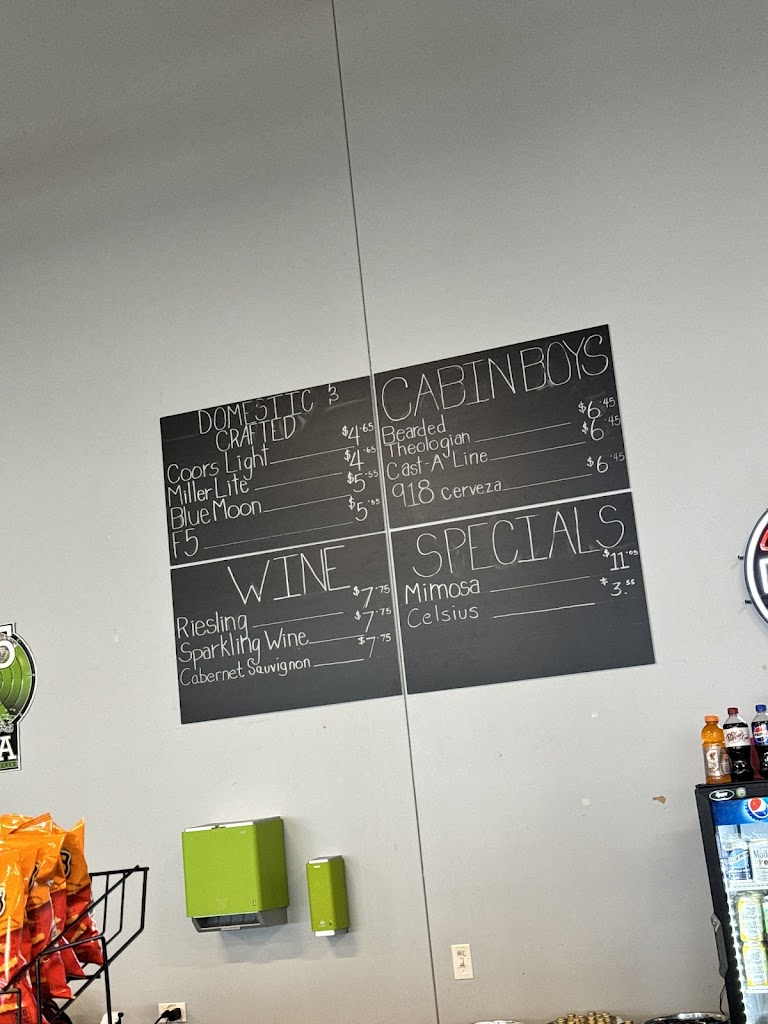 DOMESTIC &
CRAFTED
Coors Light $4.65
Miller Lite $4.65
Blue Moon $5.55
F5 $5.55
CABIN BOYS
Bearded
Theologian $6.45
Cast-A-Line $6.45
918 cerveza $6.45
WINE
Riesling $7.75
Sparkling Wine $7.75
Cabernet Sauvignon $7.75
SPECIALS
Mimosa $11.05
Celsius $3.55